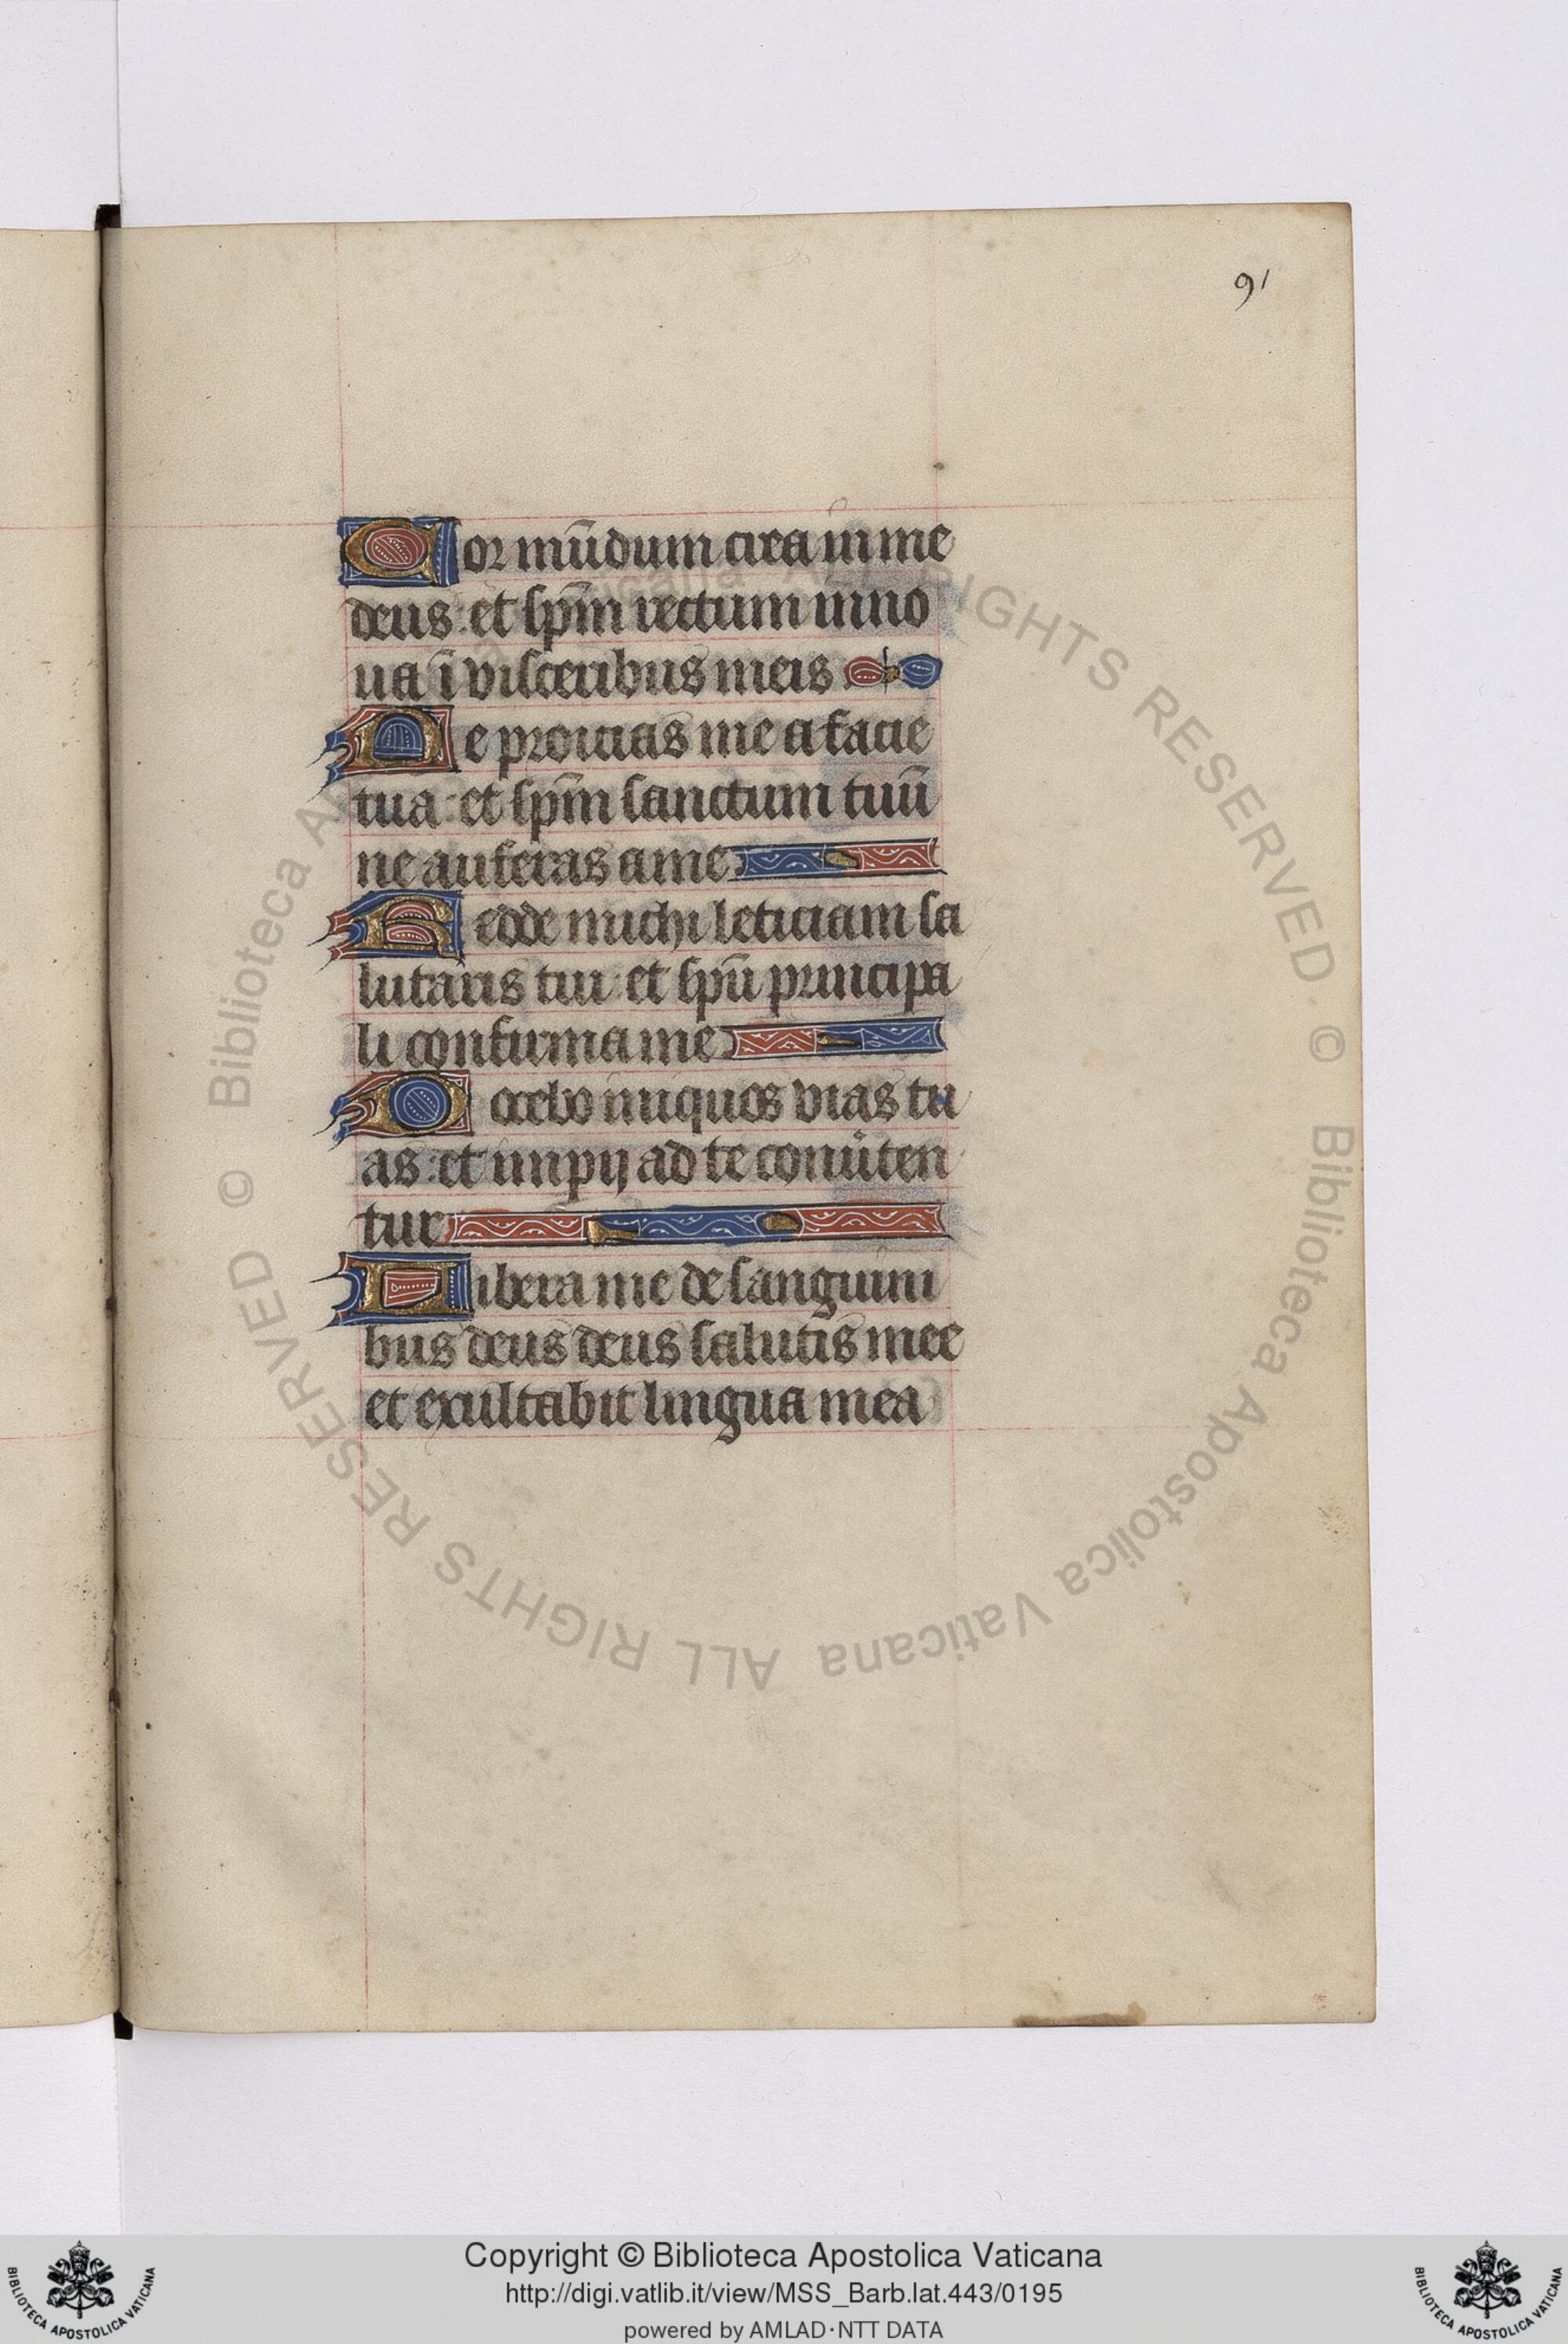 91
Cor mūdum crea in me
deus: et sp̄m rectum inno
ua ī visceribus meis
Ne proicias me a facie
tua: et sp̄m sanctum tuū
ne auferas a me
Redde michi leticiam sa
lutaris tui: et sp̄u principa
li confirma me
Docebo iniquos vias tu
as: et impij ad te conũten
tur
Libera me de sanguini
bus deus deus salutis mee
et exultabit lingua mea
© Biblioteca Apostolica Vaticana ALL RIGHTS RESERVED © Biblioteca Apostolica Vaticana ALL RIGHTS RESERVED
Copyright © Biblioteca Apostolica Vaticana
http://digi.vatlib.it/view/MSS_Barb.lat.443/0195
powered by AMLAD·NTT DATA
BIBLIOTECA APOSTOLICA VATICANA
BIBLIOTECA APOSTOLICA VATICANA